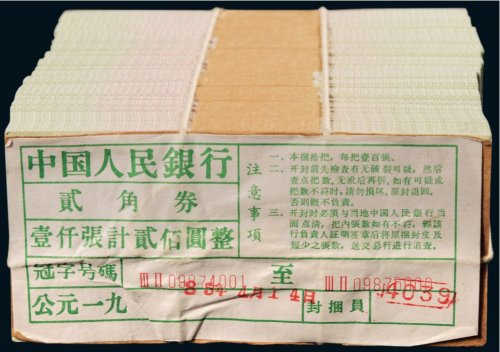 中国人民銀行
貳角券
壹仟張計貳佰圓整
冠字号碼 ⅢⅡ 09874001 至 ⅢⅡ
公元一九
8 54 4月14日
封捆員 4039
注意事項
一、本捆拾把，每把壹百張。
二、开封前先檢查有无破裂可疑，然后
查点把数，无訛后再拆，如有可疑或
把数不符时，請勿損坏，原封退回，
否則概不負責。
三、开封时必須与当地中国人民銀行当
面点清，把內張数如有不符，經該
行負責人証明簽章后將原捆封皮及
短少之張数，送交总行進行追查。